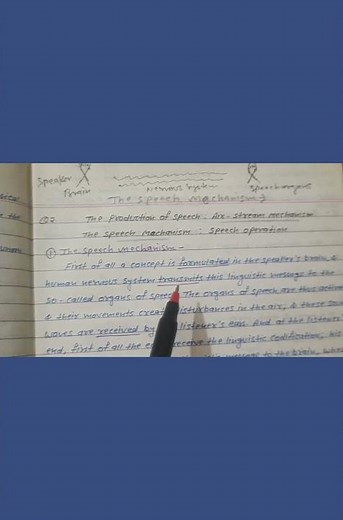 Speaker
Brain
Nervous system
Speech organs
The Speech Mechanism
Q2 The Production of Speech: Air-stream mechanism
The Speech Mechanism: Speech operation
① The Speech mechanism -
First of all a concept is formulated in the speaker's brain, &
human nervous system transmits this linguistic message to the
so-called organs of speech. The organs of speech are thus active
& their movements create disturbances in the air, & these
waves are received by listener's ears. And at the listener's
end, first of all the receive the linguistic codification, his
message to the brain,